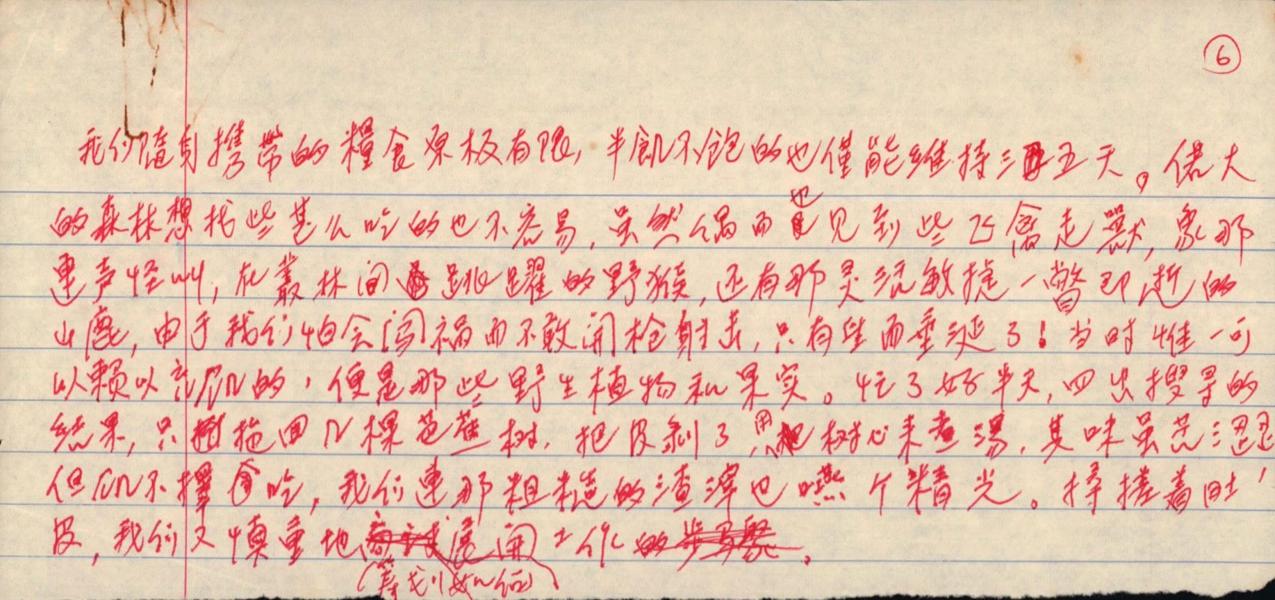 6
我们随身携带的糧食原极有限，半飢不饱的也僅能維持三五天。偌大
的森林想找些甚么吃的也不容易，虽然偶而也見到些飞禽走獸，象那
連声怪叫，在叢林间跳躍的野猴，还有那灵活敏捷一瞥即逝的
山鹿，由于我们怕会闯禍而不敢開枪射击，只有望而垂涎了！当时惟一可
以赖以充飢的，便是那些野生植物和果实。忙了好半天，四出搜寻的
结果，只拖回几棵芭蕉树，把皮剥了用树心来煮湯，其味虽苦涩涩
但飢不擇食吃，我们連那粗糙的渣滓也嚥个精光。揉搓着肚
皮，我们又慎重地展開工作
(筹划如何)